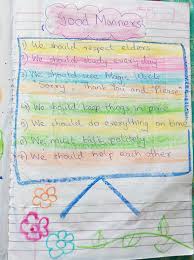 Good Manners!
1) We should respect elders
2) We should study every day
3) We should use Magic Words
Sorry Thank You and "Please"
4) We should keep things in place
5) We should do everything on time
6) We must talk politely
7) We should help each other